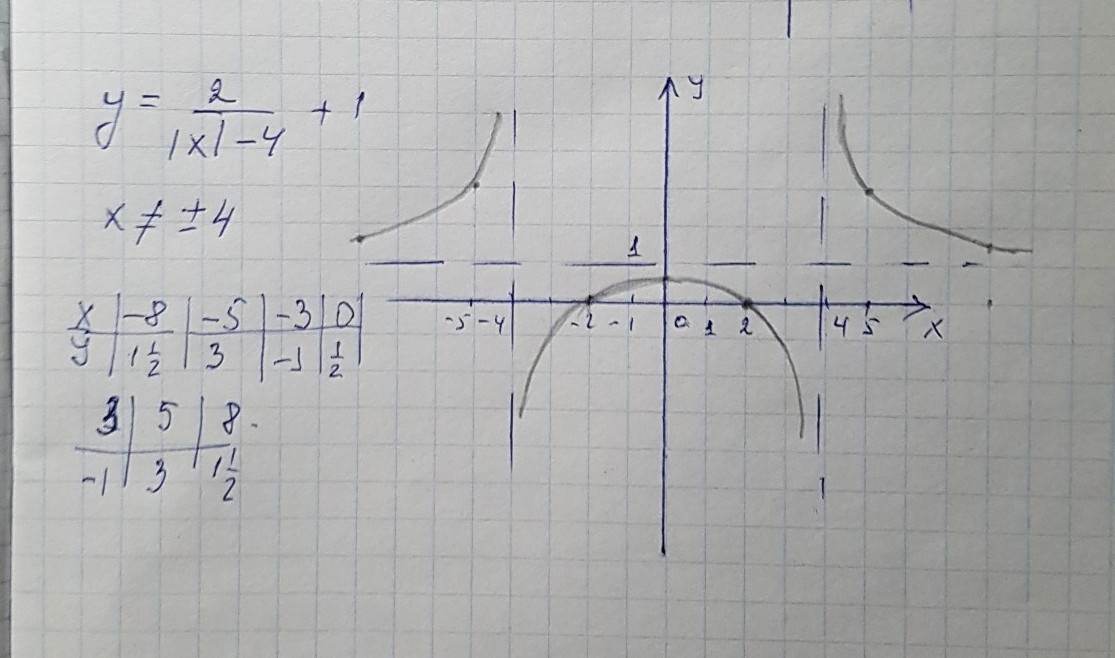 y = 2/(|x|-4) + 1
x ≠ ± 4
x | -8 | -5 | -3 | 0
y | 1 1/2 | 3 | -1 | 1/2
3 | 5 | 8
-1 | 3 | 1 1/2
y
1
-5 -4 -2 -1 0 1 2 4 5 x